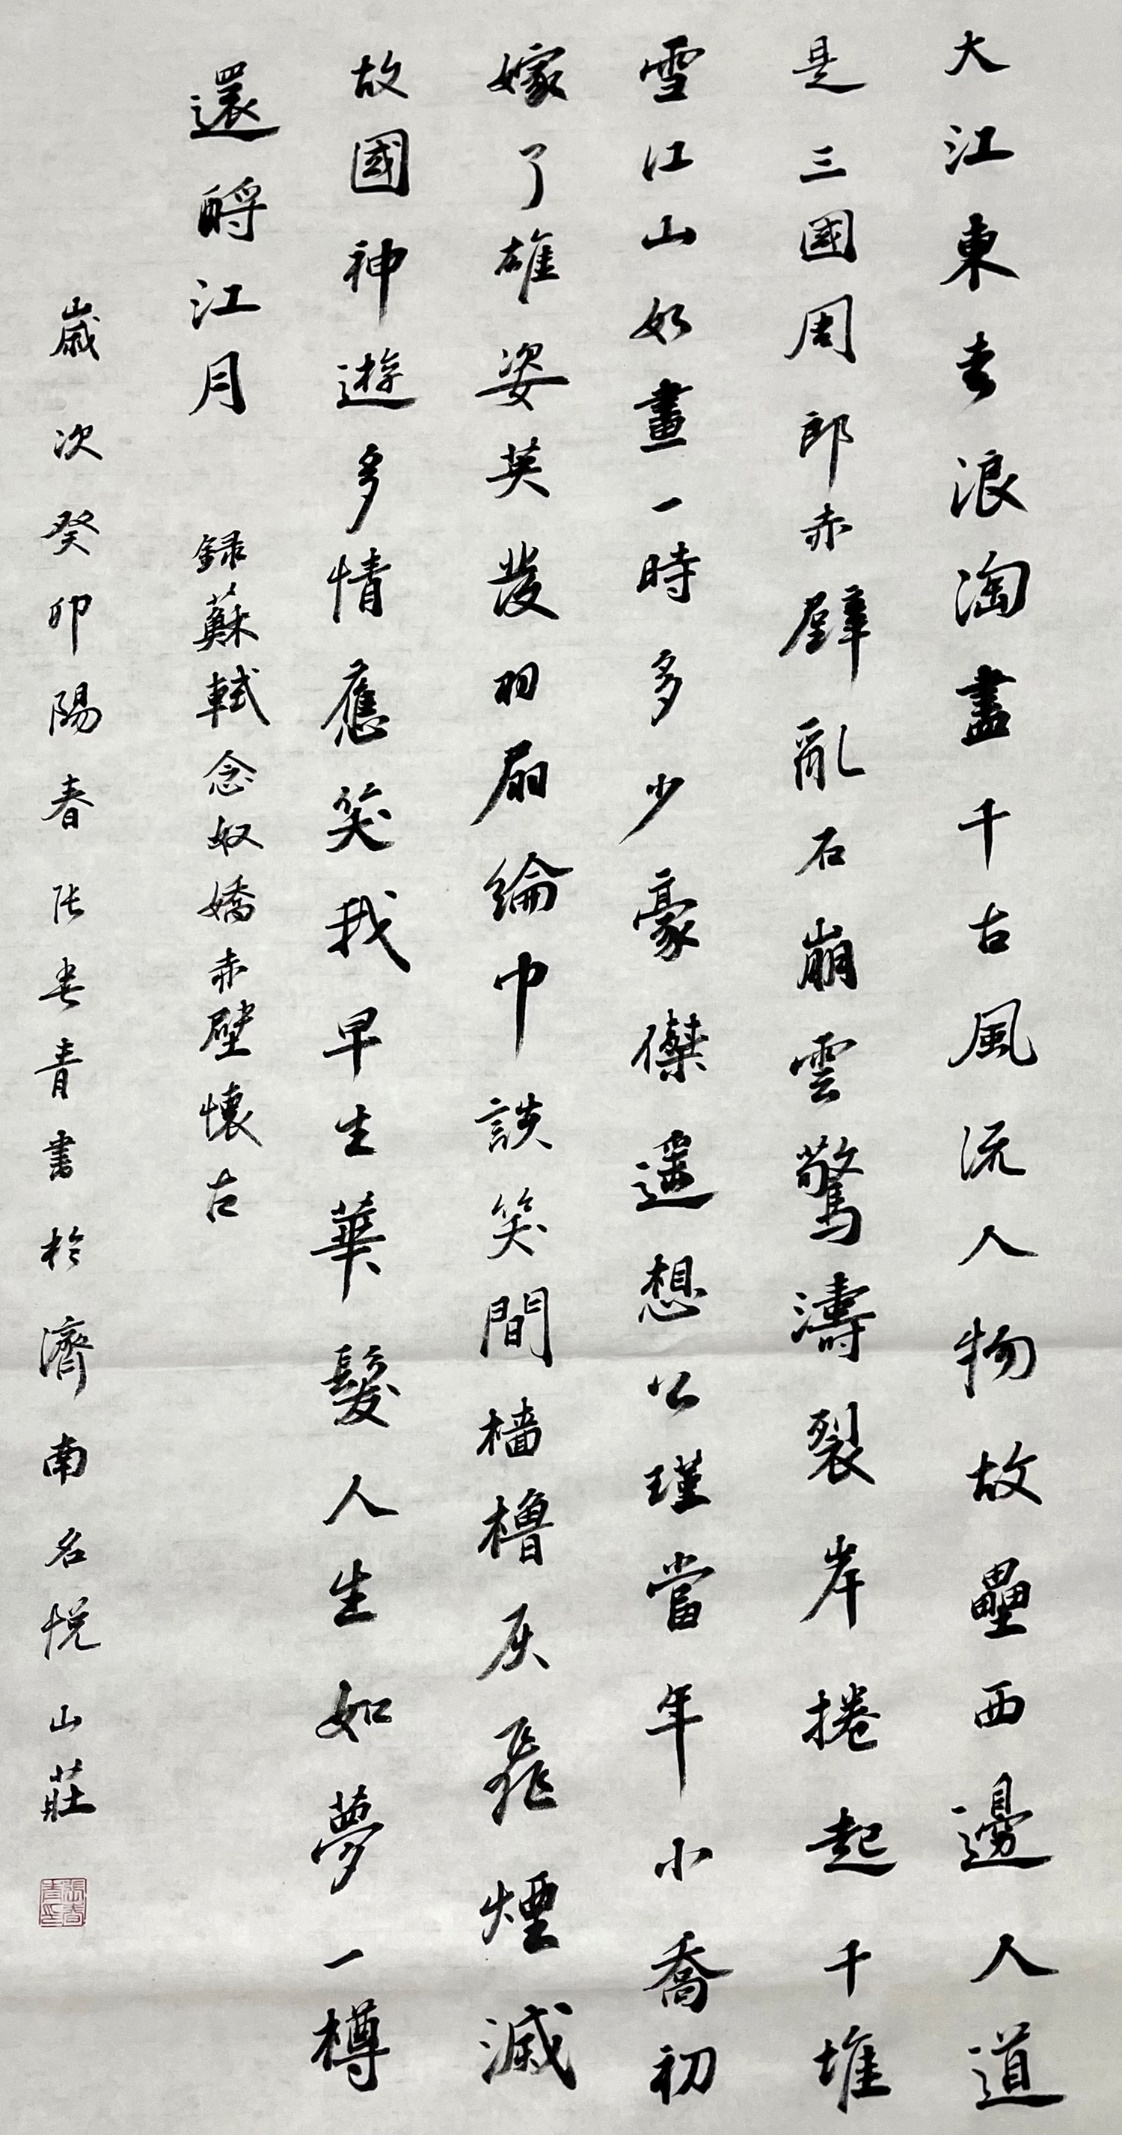 大江東去浪淘盡千古風流人物故壘西邊人道
是三國周郎赤壁亂石崩雲驚濤裂岸捲起千堆
雪江山如畫一時多少豪傑遥想公瑾當年小喬初
嫁了雄姿英發羽扇綸巾談笑間檣櫓灰飛煙滅
故國神遊多情應笑我早生華髮人生如夢一樽
還酹江月 録蘇軾念奴嬌赤壁懷古
歲次癸卯陽春張春青書於濟南名悦山莊
張春青印